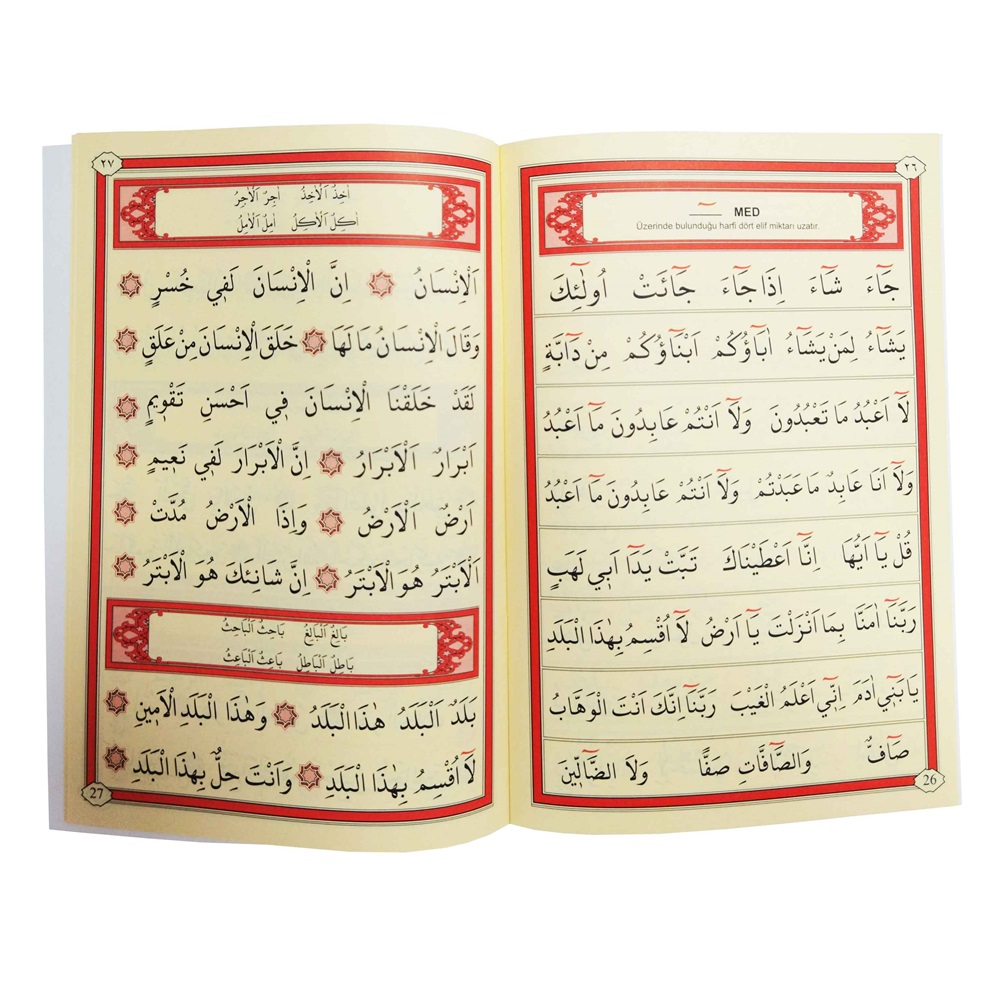 ٢٦
MED ـٓ
Üzerinde bulunduğu harfi dört elif miktarı uzatır.
جَٓاءَ شَٓاءَ اِذَا جَٓاءَ جَٓائَتْ اُولٰٓئِكَ
يَشَٓاءُ لِمَنْ يَشَٓاءُ اٰبَٓاؤُكُمْ اَبْنَٓاؤُكُمْ مِنْ دَٓابَّةٍ
لَٓا اَعْبُدُ مَا تَعْبُدُونَ وَلَٓا اَنْتُمْ عَابِدُونَ مَٓا اَعْبُدُ
وَلَٓا اَنَا عَابِدٌ مَا عَبَدْتُمْ وَلَٓا اَنْتُمْ عَابِدُونَ مَٓا اَعْبُدُ
قُلْ يَٓا اَيُّهَا اِنَّٓا اَعْطَيْنَاكَ تَبَّتْ يَدَٓا اَبِي لَهَبٍ
رَبَّنَٓا اٰمَنَّا بِمَٓا اَنْزَلْتَ يَٓا اَرْضُ لَٓا اُقْسِمُ بِهٰذَا الْبَلَدِ
يَا بَنِٓي اٰدَمَ اِنِّٓي اَعْلَمُ الْغَيْبَ رَبَّنَٓا اِنَّكَ اَنْتَ الْوَهَّابُ
صَٓافٌّ وَالصَّٓافَّاتِ صَفًّا وَلَا الضَّٓالِّينَ
26
٢٧
اٰخِذُ اَلْاٰخِذُ اٰجِرُ اَلْاٰجِرُ
اٰكِلُ اَلْاٰكِلُ اٰمِلُ اَلْاٰمِلُ
اَلْاِنْسَانُ اِنَّ الْاِنْسَانَ لَفِي خُسْرٍ
وَقَالَ الْاِنْسَانُ مَا لَهَا خَلَقَ الْاِنْسَانَ مِنْ عَلَقٍ
لَقَدْ خَلَقْنَا الْاِنْسَانَ فِي اَحْسَنِ تَقْوِيمٍ
اَبْرَارٌ اَلْاَبْرَارُ اِنَّ الْاَبْرَارَ لَفِي نَعِيمٍ
اَرْضٌ اَلْاَرْضُ وَاِذَا الْاَرْضُ مُدَّتْ
اَلْاَبْتَرُ هُوَ الْاَبْتَرُ اِنَّ شَانِئَكَ هُوَ الْاَبْتَرُ
بَالِغٌ اَلْبَالِغُ بَاحِثٌ اَلْبَاحِثُ
بَاطِلٌ اَلْبَاطِلُ بَاعِثٌ اَلْبَاعِثُ
بَلَدٌ اَلْبَلَدُ هٰذَا الْبَلَدُ وَهٰذَا الْبَلَدِ الْاَمِينِ
لَٓا اُقْسِمُ بِهٰذَا الْبَلَدِ وَاَنْتَ حِلٌّ بِهٰذَا الْبَلَدِ
27